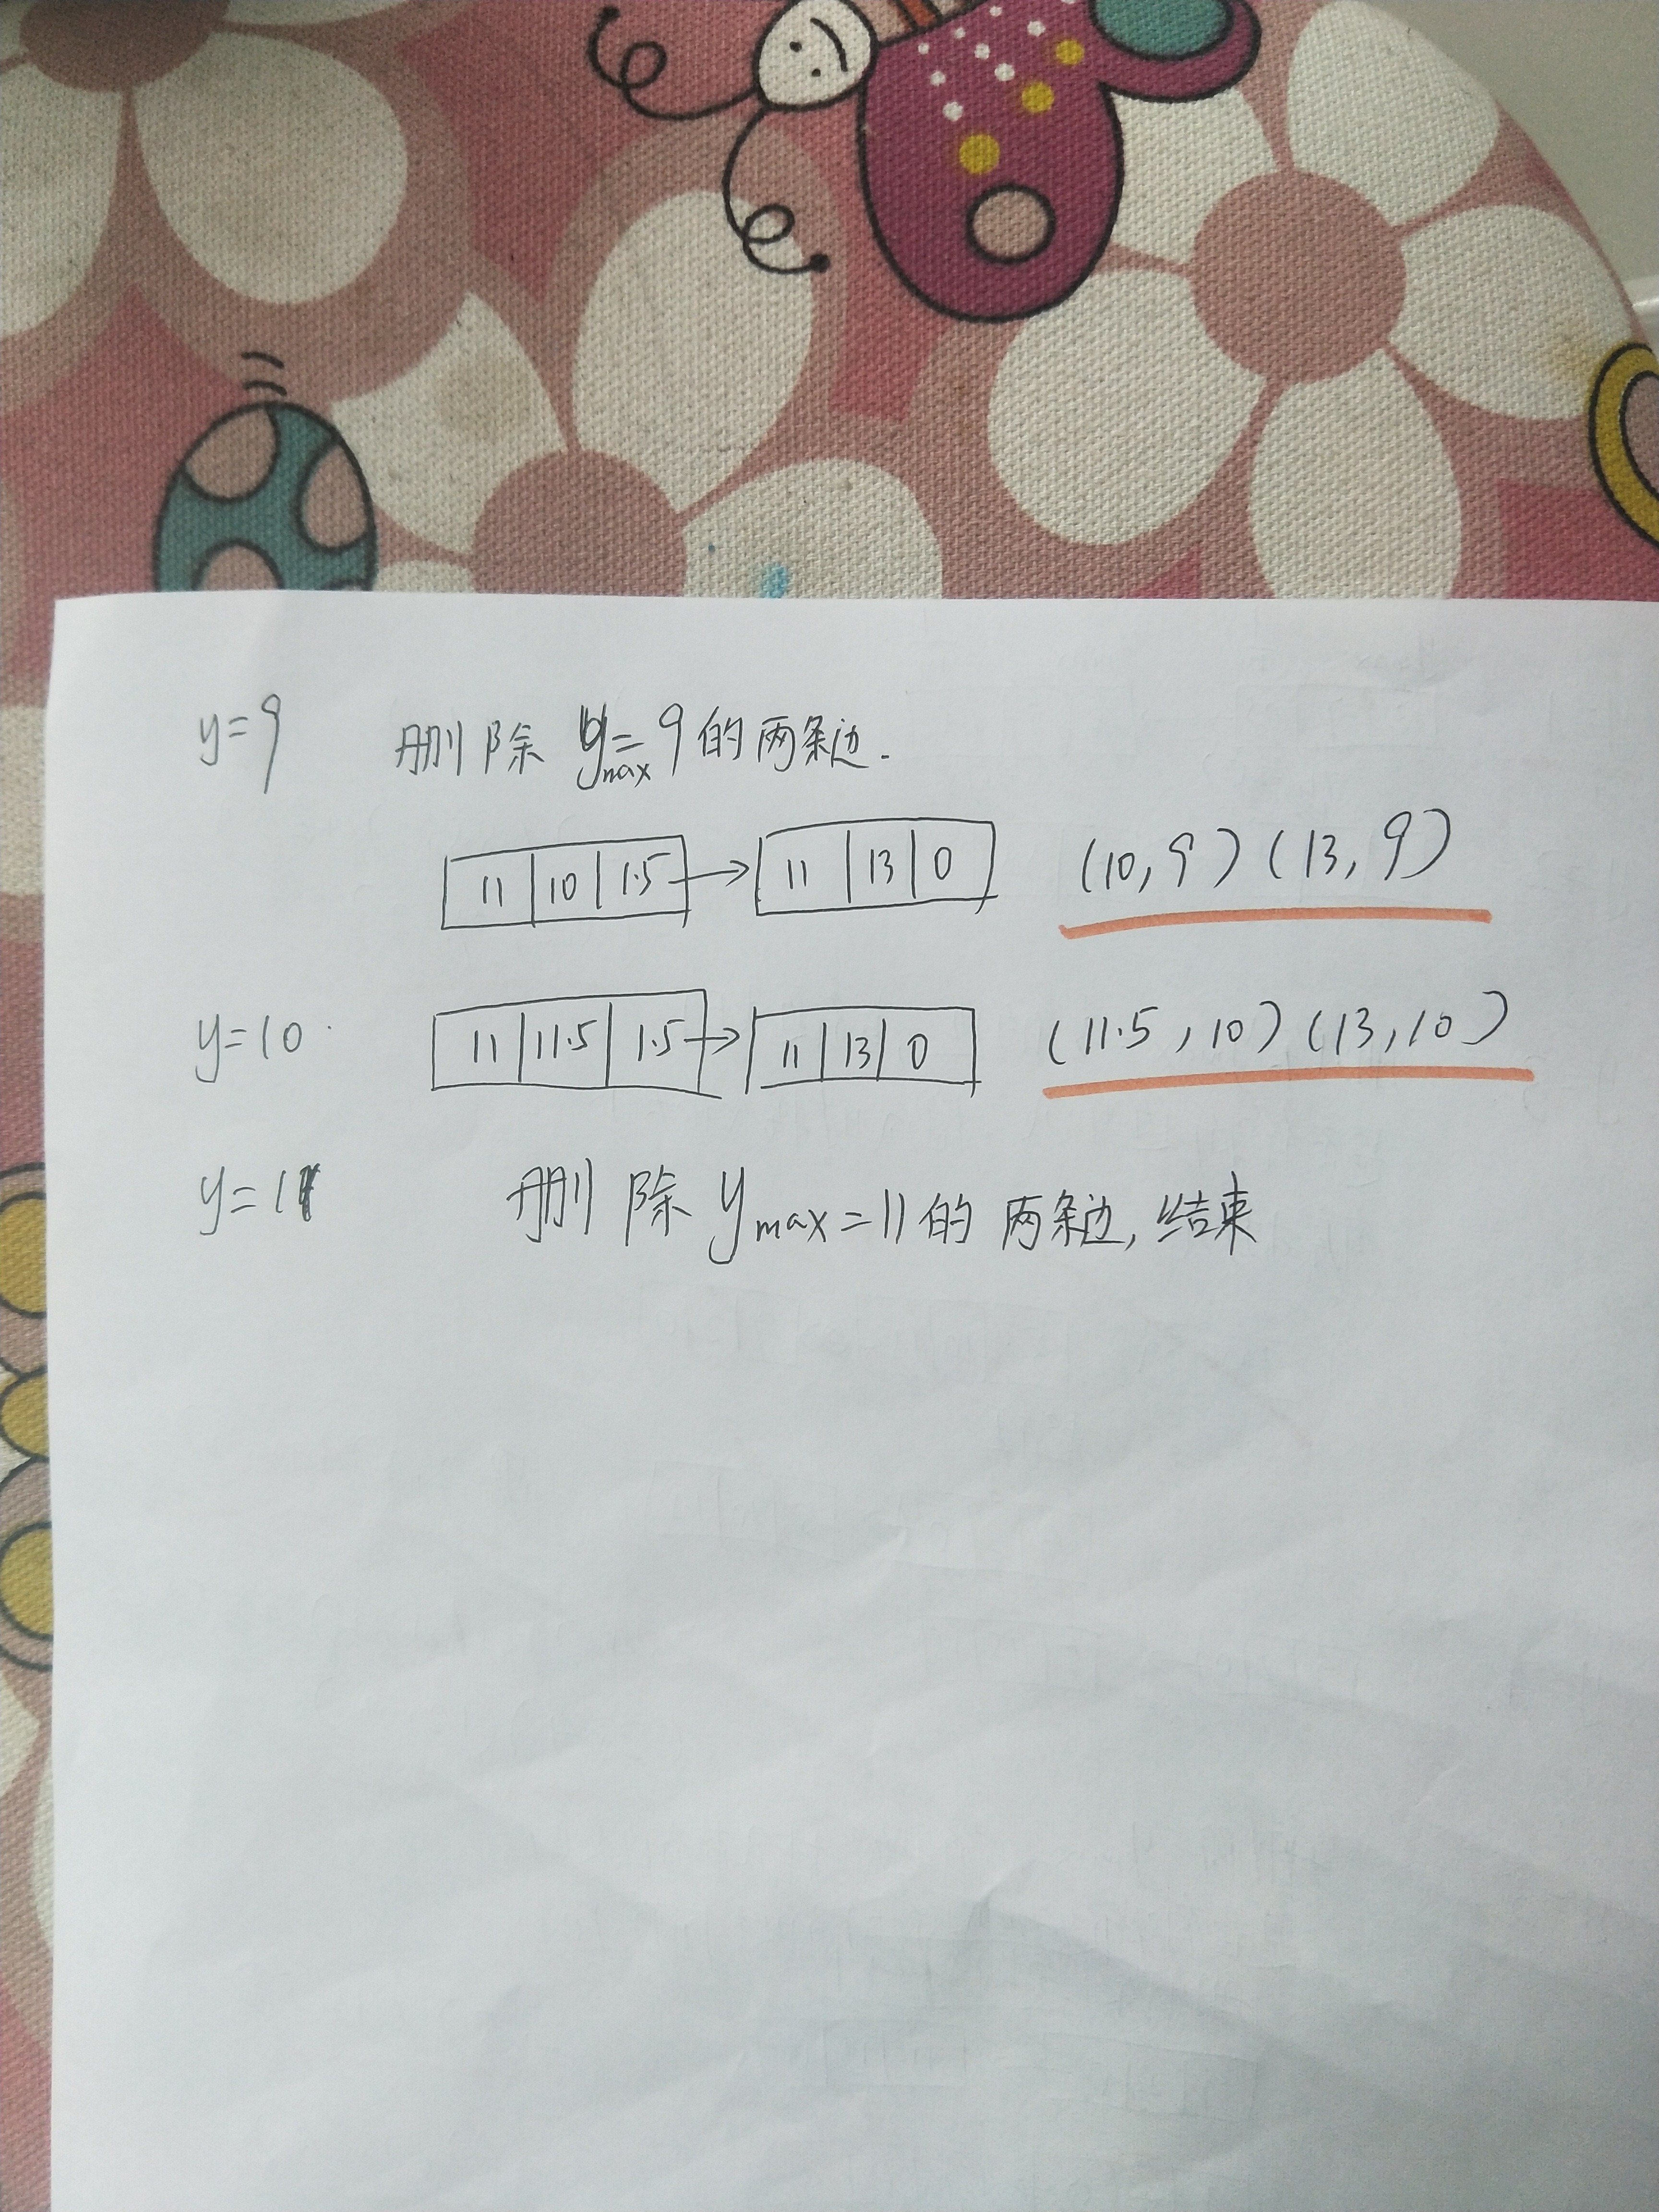 y=9 删除 ymax=9的两条边.
11 10 1.5 → 11 13 0 (10,9)(13,9)
y=10 11 11.5 1.5 → 11 13 0 (11.5,10)(13,10)
y=11 删除 ymax=11的两条边,结束